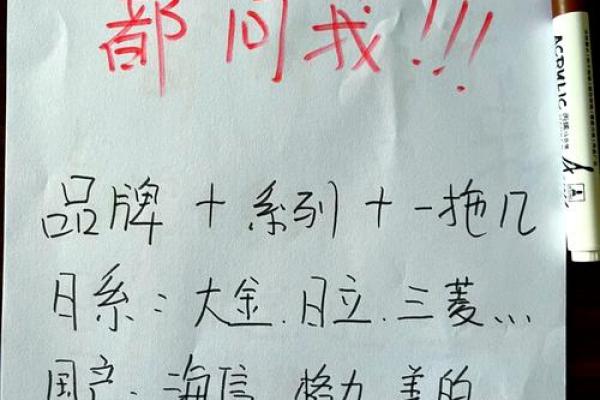 都问我!!!
品牌+系列+一拖几
日系:大金.日立.三菱...
国产:海信 格力 美的
ACRYLIC